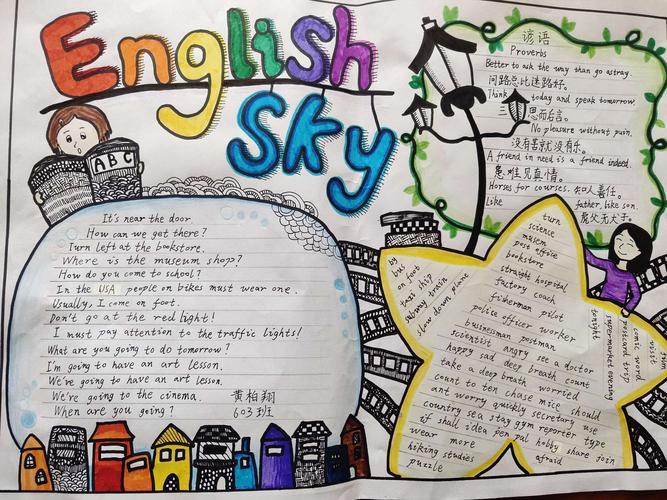 English
Sky
ABC
It's near the door
How can we get there?
Turn left at the bookstore.
Where is the museum shop?
How do you come to school?
In the USA people on bikes must wear one.
Usually, I come on foot.
Don't go at the red light!
I must pay attention to the traffic lights!
What are you going to do tomorrow?
I'm going to have an art lesson.
We're going to have an art lesson.
We're going to the cinema. 黄柏翔
When are you going? 603班
谚语
Proverbs
Better to ask the way than go astray.
问路总比迷路好。
Think today and speak tomorrow
三思而后言。
No pleasure without pain.
没有苦就没有乐。
A friend in need is a friend indeed.
患难见真情。
Horses for courses. 知人善任。
Like father, like son.
虎父无犬子。
by
bus
on foot
taxi ship
subway train
slow down plane
turn
science
musem
post office
bookstore
straight hospital
factory coach
fisherman pilot
police officer worker
businessman postman
scientist angry see a doctor
happy sad deep breath count
take a deep breath worried
count to ten chase mice should
ant worry quickly secretary use
country sea stay gym reporter type
if shall idea pen pal hobby share join
wear more
hiking studies afraid
puzzle
tonight
supermarket evening
postcard trip
comic word
visit